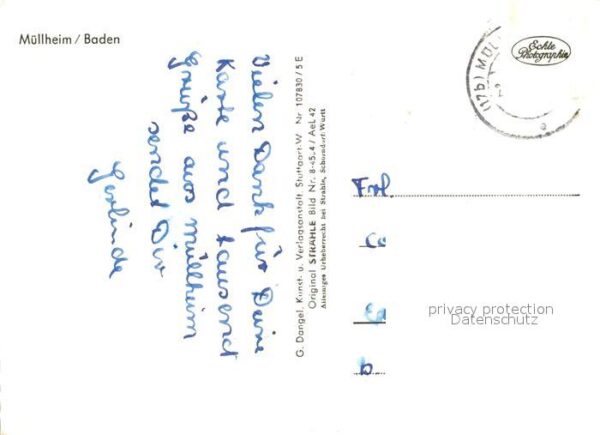 Müllheim / Baden
Vielen Dank für Deine
Karte und tausend
Grüße aus Müllheim
sendet Dir
Gerlinde
G. Dangel, Kunst. u. Verlagsanstalt Stuttgart-W Nr 107830/5 E
Original STRÄHLE Bild Nr. 8-45.4/AeL 42
Alleiniges Urheberrecht bei Strähle, Schorndorf/Württ
(17b) MÜL
Echte
Photographie
Frl.
privacy protection
Datenschutz